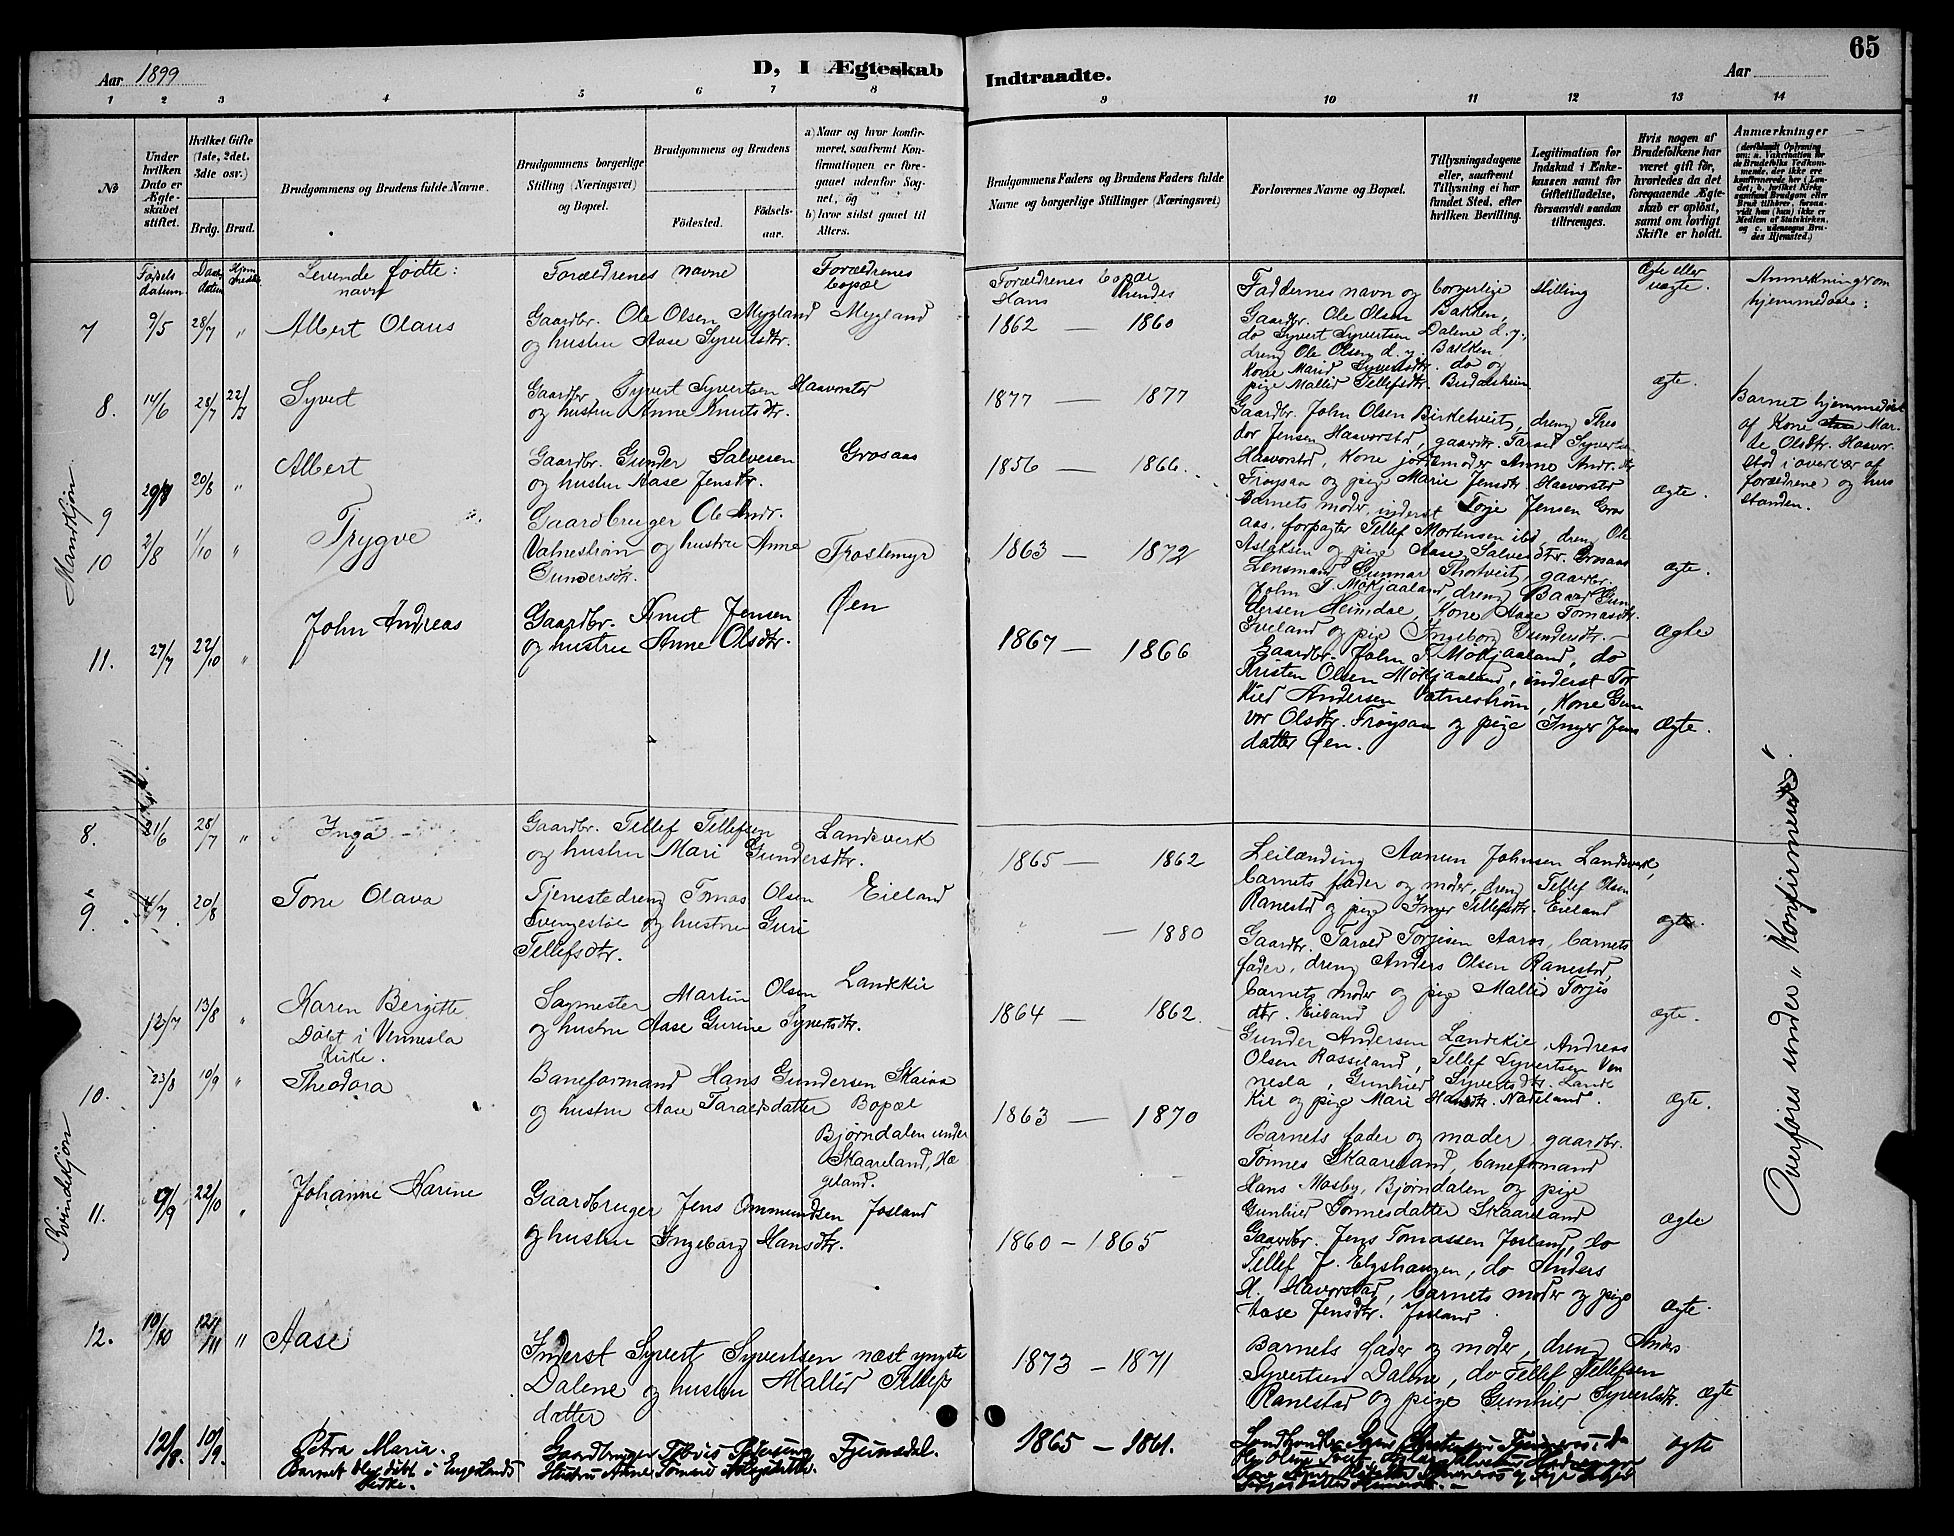 65
Aar 1899
D, I Ægteskab
Indtraadte.
Aar
1 2 3 4 5 6 7 8
9 10 11 12 13 14
No
Under hvilken Dato er Ægteskabet stiftet.
Hvilket Gifte (1ste, 2det. 3die osv.)
Brdg. Brud.
Brudgommens og Brudens fulde Navne.
Brudgommens borgerlige Stilling (Næringsvei) og Bopæl.
Brudgommens og Brudens
Fødested.
Fødselsaar.
a) Naar og hvor konfirmeret, saafremt Konfirmationen er foregaaet udenfor Sognet, og
b) hvor sidst gaaet til Alters.
Brudgommens Faders og Brudens Faders fulde Navne og borgerlige Stillinger (Næringsvei)
Forlovernes Navne og Bopæl.
Tillysningsdagene eller, saafremt Tillysning ei har fundet Sted, efter hvilken Bevilling.
Legitimation for Indskud i Enkekassen samt for Giftetilladelse, forsaavidt saadan tiltrænges.
Hvis nogen af Brudefolkene har været gift før, hvorledes da det foregaaende Ægteskab er opløst, samt om lovligt Skifte er holdt.
Anmærkninger
Føsels datum
Levende fødte: navn
Forældrenes navne
Forældrenes bopæl
Forældrenes bopæl
Hans hendes
Faddernes navn og borgerlige stilling
Ægte eller uægte.
hjemmedaab:
Mandkjøn
7 9/5 28/7 " Albert Olaus
Gaardbr. Ole Olsen Mygland Mygland
og hustru Aase Syvertsdtr.
1862 — 1860
Gaardbr. Ole Olsen Bakken,
do Syvert Syvertsen Dalene d. y.,
dreng Ole Olsen d. y. Bakken,
kone Marid Syvertsdtr. do og
pige Mallid Tellefsdtr.
ægte.
8. 14/6 28/7 22/7 Syvert
Gaardbr Syvert Syvertsen Haavorstad
og hustru Anne Knutsdtr.
1877 — 1877
Gaardbr. John Olsen Birketveit, dreng Theo
dor Jensen Haavorstad, gaardbr. Tarald Syvertsen
Haavorstad, kone jordemoder Anne Andr. dtr
Frøysaa og pige Marie Jensdtr Haavorstad
ægte.
Barnet hjemmedøbt
af Kone Mar-
te Olsdtr. Haavor
stad i overvær af
forældrene og hus
standen.
9 20/8 " Albert
Gaardbr. Gunder Salvesen Grosaas
og hustru Aase Jensdtr.
1856 — 1866.
Barnets moder, inderst Torje Jensen Gros
aas, forpagter Tellef Mortensen ibd, dreng Ole
Aslaksen og pige Aase Salvesdtr. Grosaas
ægte.
10 2/8 1/10 " Trygve
Gaardbruger Ole Andr.
Vatnestrøm og hustru Anne Frostemyr
Gundersdtr.
1863 — 1872
Lensmand Gunnar Thortveit, gaardbr.
John T. Møkjaaland, dreng Baard Gun
dersen Heimdal, kone Aase Tomasdtr.
Sveland og pige Ingeborg Gundersdtr. —
Ægte
11. 27/7 22/10 " John Andreas
Gaardbr. Knut Jensen Øen
og hustru Anne Olsdtr.
1867 — 1866
Gaardbr. John T. Møkjaaland, do
Kristen Olsen Møkjaaland, inderst Tor
kild Andersen Vatnestrøm, Kone Gun
vor Olsdtr. Frøysaa og pige Inger Jens
datter Øen.
Ægte.
Kvindekjøn
8. 21/6 28/7 " Inga
Gaardbr. Tellef Tellefsen Landsverk
og hustru Mari Gundersdtr.
1865 — 1862
Leilænding Aanen Johnsen Landsverk,
barnets fader og moder, dreng Tellef Olsen
Ranestad og pige Inger Tellefsdtr. Eieland
ægte.
9. 4/7 20/8 Tone Olava
Tjenestedreng Tomas Olsen Eieland
Svengestøe og hustru Guri
Tellefsdtr.
" — 1880
Gaardbr. Tarald Torjisen Aaros, barnets
fader, dreng Anders Olsen Ranestad,
barnets moder og pige Mallid Torjis
dtr. Eieland
ægte.
12/7 13/8 " Karen Bergitte
Døbt i Vennesla Kirke.
Sagmester Martin Olsen Landekil
og hustru Aase Gurine Syvertsdtr.
1864 — 1862.
Gunder Andersen Landekil, Andreas
Olsen Rosseland, Tellef Syvertsen Ven
nesla, Gunhild Syvertsdtr. Lande
kil og pige Mari Hansdtr. Nateland.
Ægte.
10. 23/8 10/9 " Theodora
Baneformand Hans Gundersen Skaiaa
og hustru Aase Taraldsdatter Bopæl
Bjørndalen under
Skaareland, Hæ
geland.
1863 — 1870
Barnets fader og moder, gaardbr.
Tønnes Skaareland, baneformand
Hans Mosby, Bjørndalen og pige
Gunhild Tønnesdatter Skaareland
Ægte
11. 9/9 22/10 " Johanne Karine
Gaardbruger Jens Ommundsen Josland
og hustru Ingeborg Hansdtr.
1860 – 1865
Gaardbr. Jens Tomassen Josland, do
Tellef J. Elgshaugen, do Anders
H. Haavorstad, barnets moder og pige
Aase Jensdtr. Josland
Ægte.
12. 10/10 12/11 " Aase
Inderst Syvert Syvertsen næst yngste
Dalene og hustru Mallid Tellefs
datter
1873 – 1871
Barnets fader og moder, dreng Anders
Syvertsen Dalene, do Tellef Tellefsen
Ranestad og pige Gunhild Syvertsdtr.
Ægte
12/8. 10/9. Petra Maria.
Barnet blev døbt i Engeslands Kirke.
Gaardbruger Pedersen Tjeinsdal.
Hustru Anne
1865 – 1861.
ægte
Overføres under „Konfirmerede".